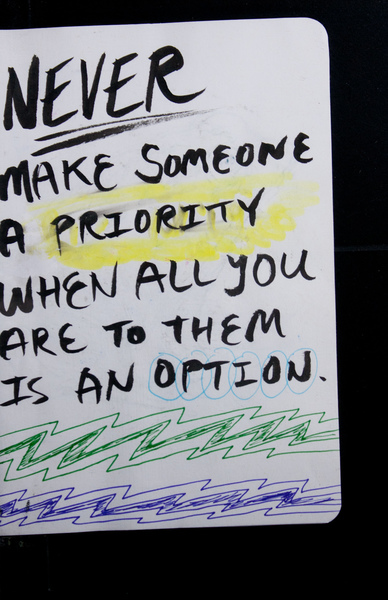 NEVER
MAKE SOMEONE
A PRIORITY
WHEN ALL YOU
ARE TO THEM
IS AN OPTION.